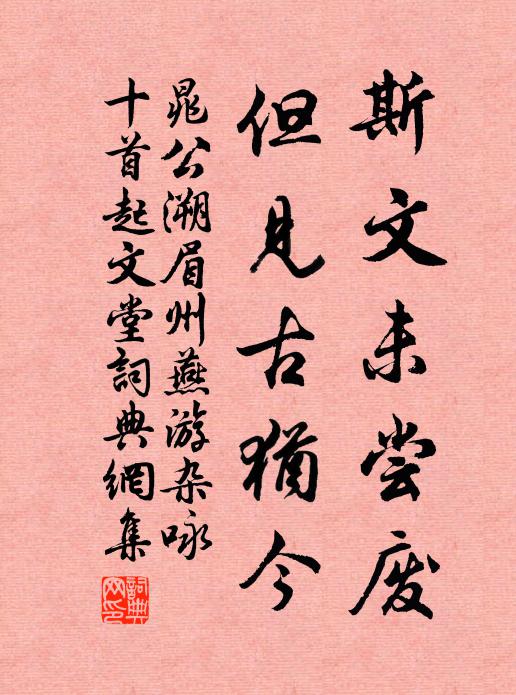 斯文未尝废
但见古犹今
晁公溯眉州燕游杂咏
十首起文堂詞典網集
詞典網印